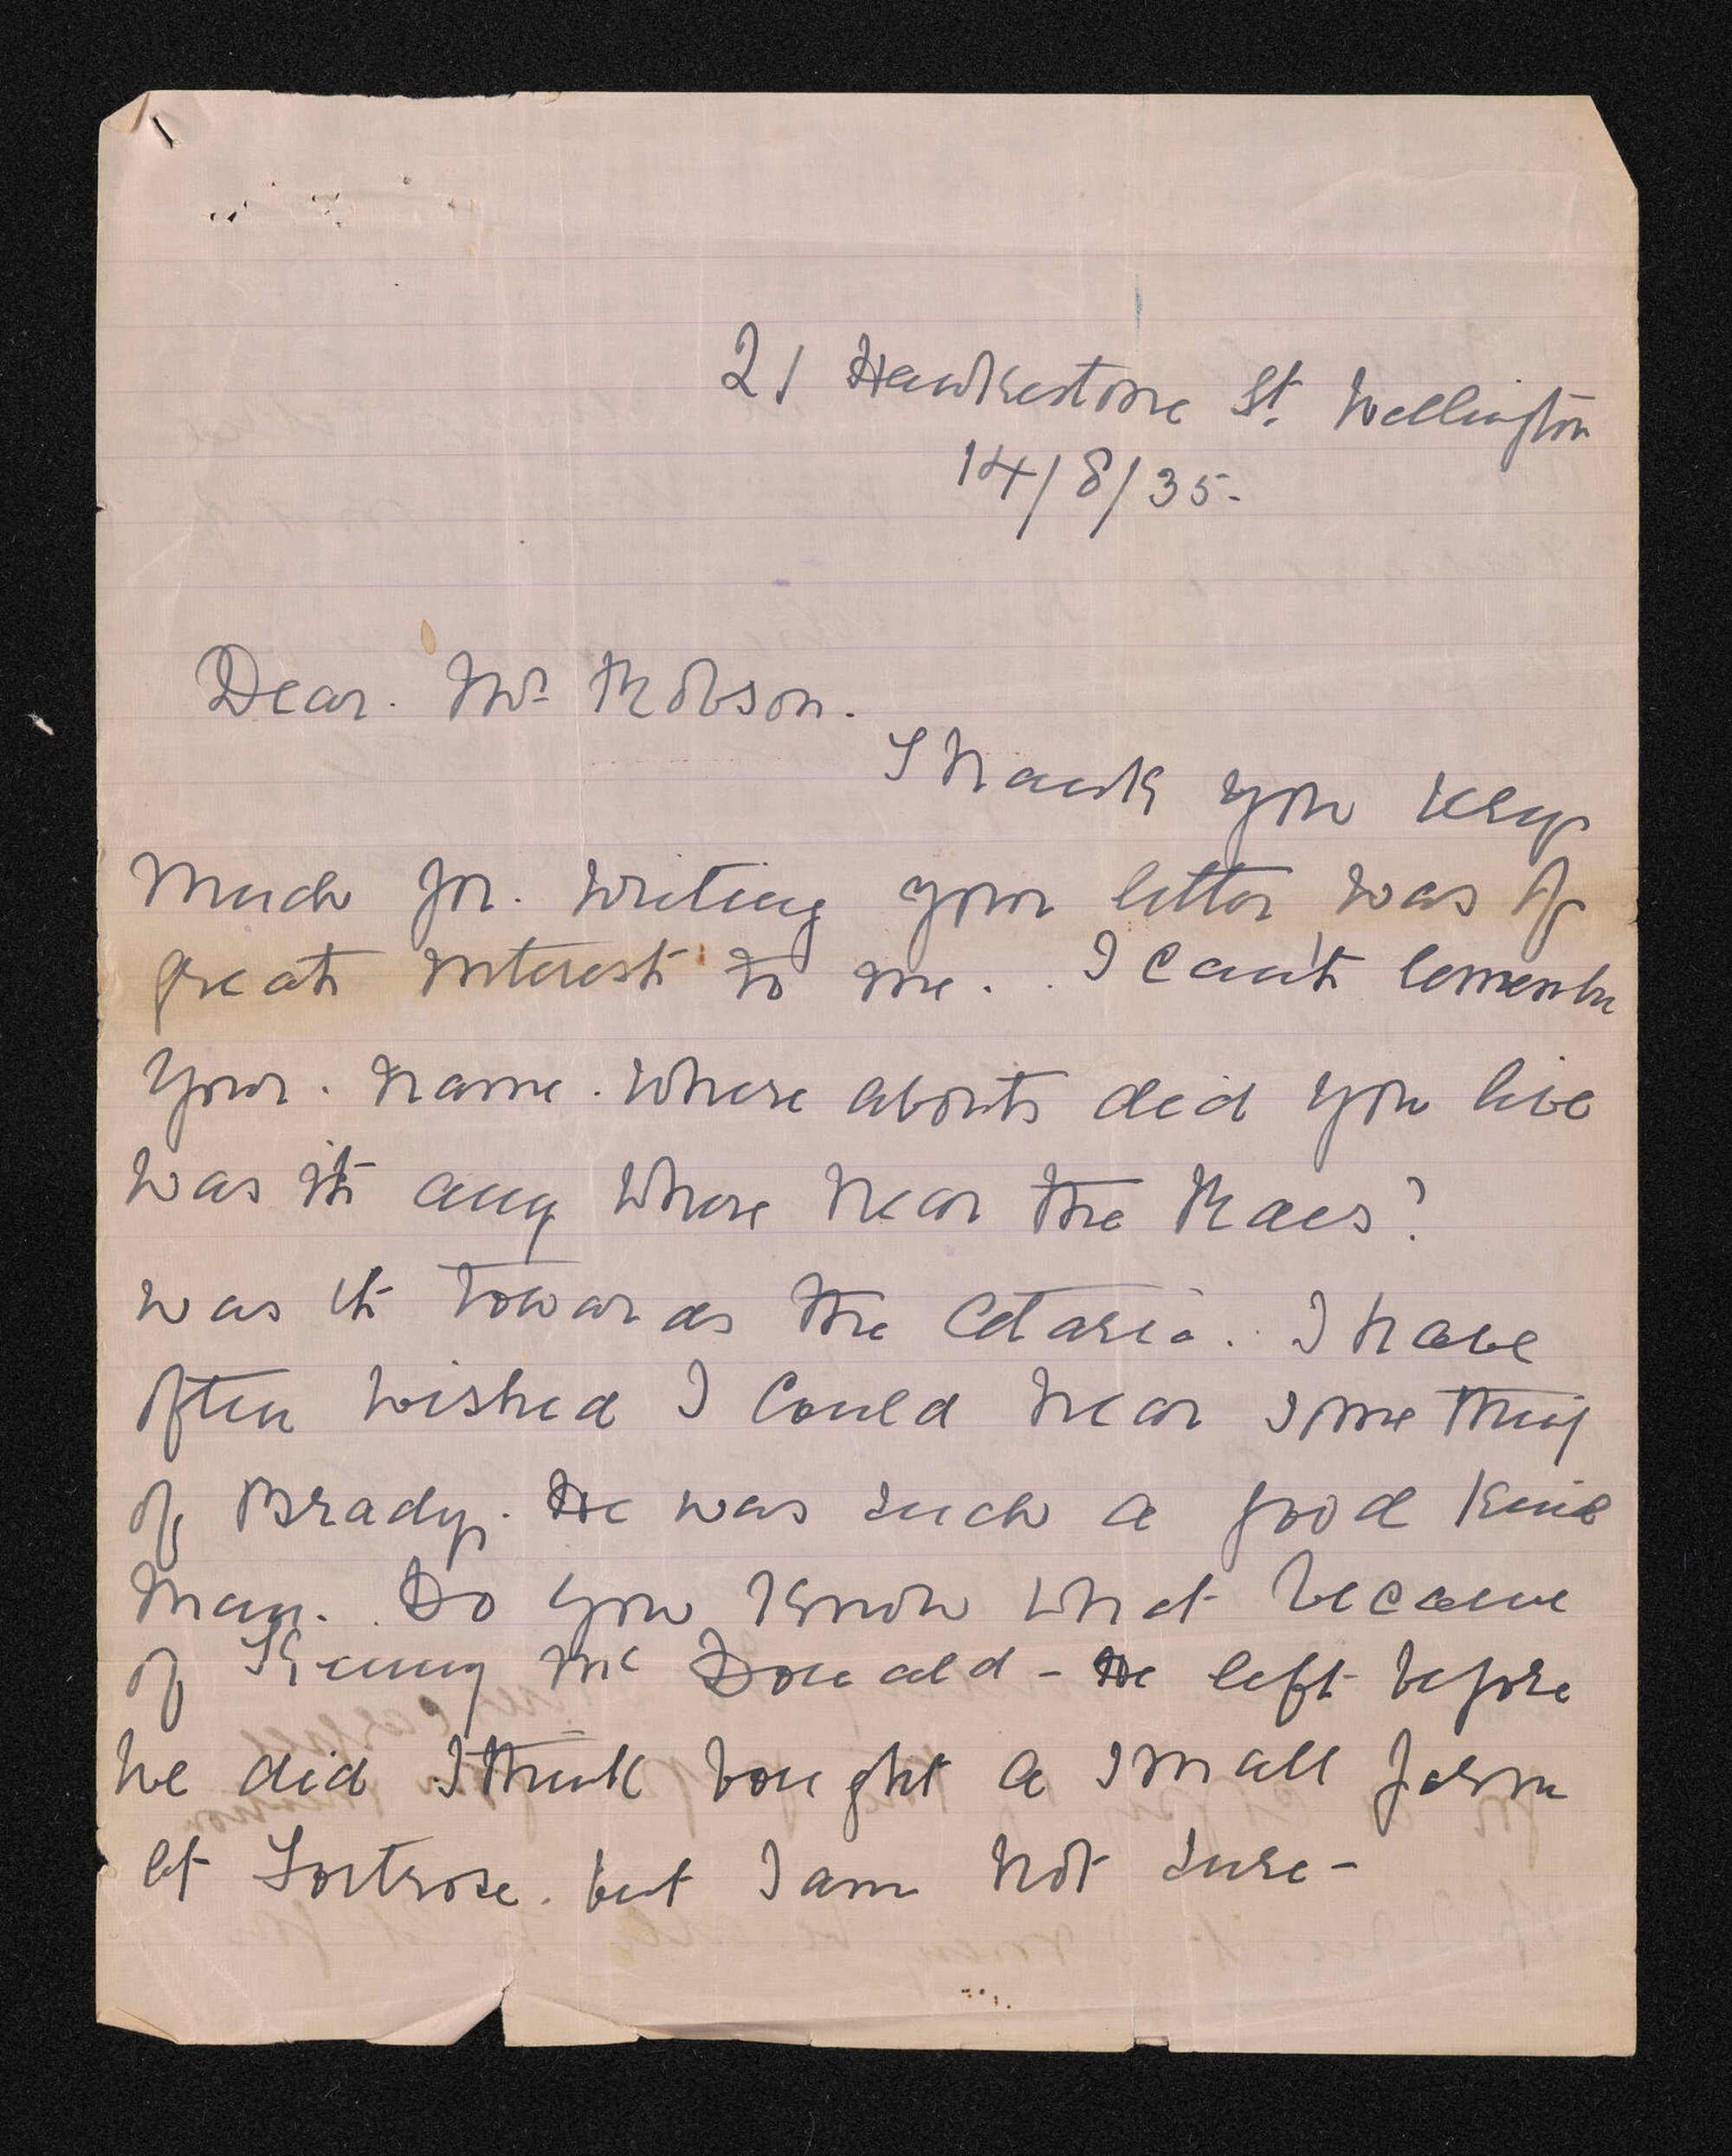 21 Hawkestone St. Wellington
14/8/35-
Dear. Mr Robson.
Thank you very
much for. writing your letter was of
great interest to me. . I can't
your. name. where abouts did you live
was it any where near the Raes?
was it towards the I have
often wished I could hear some thing
of Brady. He was such a good kind
man. . Do you know what became
of Kenny Mc Donald - He left before
he did I think bought a small farm
at Fortrose. but I am not sure-